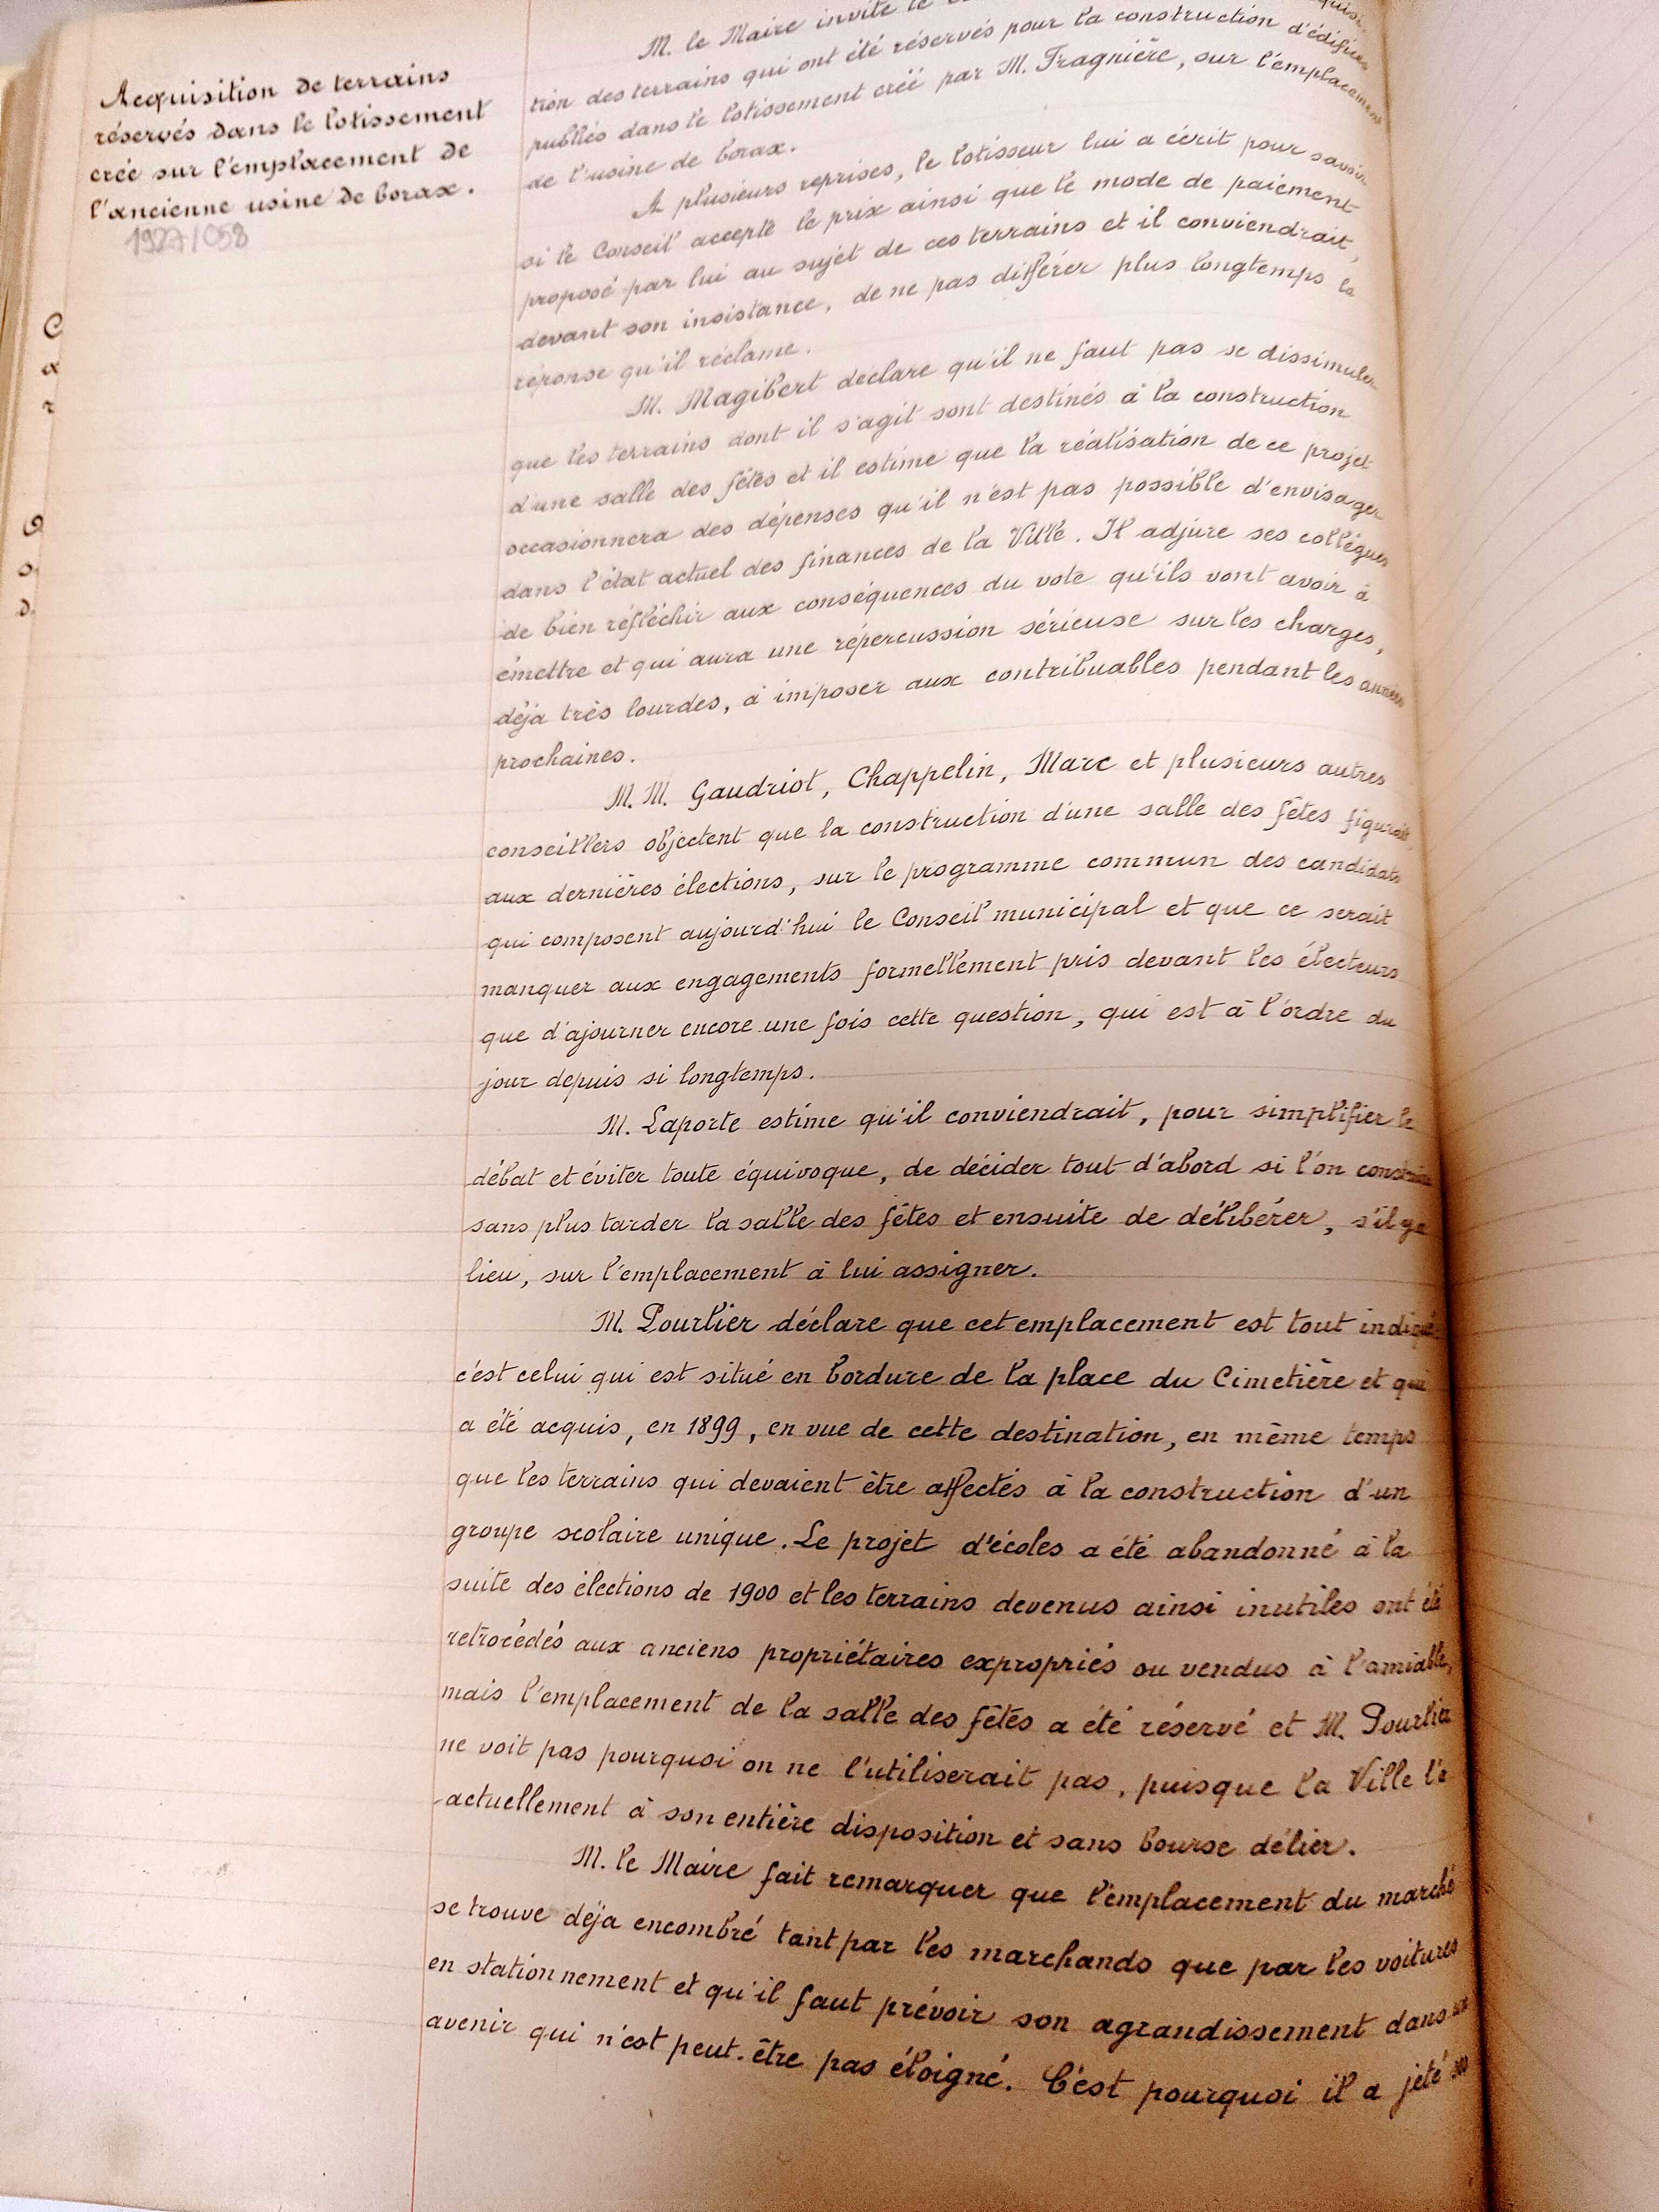 Acquisition de terrains
réservés dans le lotissement
créé sur l'emplacement de
l'ancienne usine de borax.
1927/058
C
a
r
M. le Maire invite le
tion des terrains qui ont été réservés pour la construction d'édifices
publics dans le lotissement créé par M. Fragnière, sur l'emplacement
de l'usine de borax.
A plusieurs reprises, le lotisseur lui a écrit pour savoir
si le Conseil accepte le prix ainsi que le mode de paiement
proposé par lui au sujet de ces terrains et il conviendrait,
devant son insistance, de ne pas différer plus longtemps la
réponse qu'il réclame.
M. Magibert déclare qu'il ne faut pas se dissimuler
que les terrains dont il s'agit sont destinés à la construction
d'une salle des fêtes et il estime que la réalisation de ce projet
occasionnera des dépenses qu'il n'est pas possible d'envisager
dans l'état actuel des finances de la Ville. Il adjure ses collègues
de bien réfléchir aux conséquences du vote qu'ils vont avoir à
émettre et qui aura une répercussion sérieuse sur les charges,
déjà très lourdes, à imposer aux contribuables pendant les années
prochaines.
M.M. Gaudriot, Chappelin, Marc et plusieurs autres
conseillers objectent que la construction d'une salle des fêtes figurait
aux dernières élections, sur le programme commun des candidats
qui composent aujourd'hui le Conseil municipal et que ce serait
manquer aux engagements formellement pris devant les électeurs
que d'ajourner encore une fois cette question, qui est à l'ordre du
jour depuis si longtemps.
M. Laporte estime qu'il conviendrait, pour simplifier le
débat et éviter toute équivoque, de décider tout d'abord si l'on construira
sans plus tarder la salle des fêtes et ensuite de délibérer, s'il y a
lieu, sur l'emplacement à lui assigner.
M. Pourlier déclare que cet emplacement est tout indiqué:
c'est celui qui est situé en bordure de la place du Cimetière et qui
a été acquis, en 1899, en vue de cette destination, en même temps
que les terrains qui devaient être affectés à la construction d'un
groupe scolaire unique. Le projet d'écoles a été abandonné à la
suite des élections de 1900 et les terrains devenus ainsi inutiles ont été
retrocédés aux anciens propriétaires expropriés ou vendus à l'amiable,
mais l'emplacement de la salle des fêtes a été réservé et M. Pourlier
ne voit pas pourquoi on ne l'utiliserait pas, puisque la Ville l'a
actuellement à son entière disposition et sans bourse délier.
M. le Maire fait remarquer que l'emplacement du marché
se trouve déjà encombré tant par les marchands que par les voitures
en stationnement et qu'il faut prévoir son agrandissement dans un
avenir qui n'est peut-être pas éloigné. C'est pourquoi il a jeté